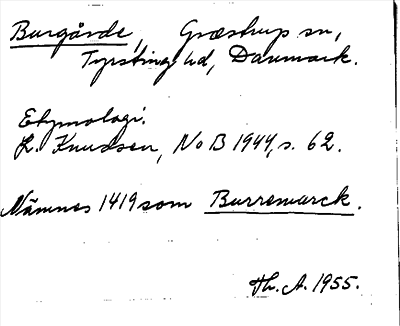 Burgårde, Græstrup sn,
Tyrsting hd, Danmark.
Etymologi.
L. Knudsen, NoB 1944, s. 62.
Nämnes 1419 som Burremarck.
Th. A. 1955.